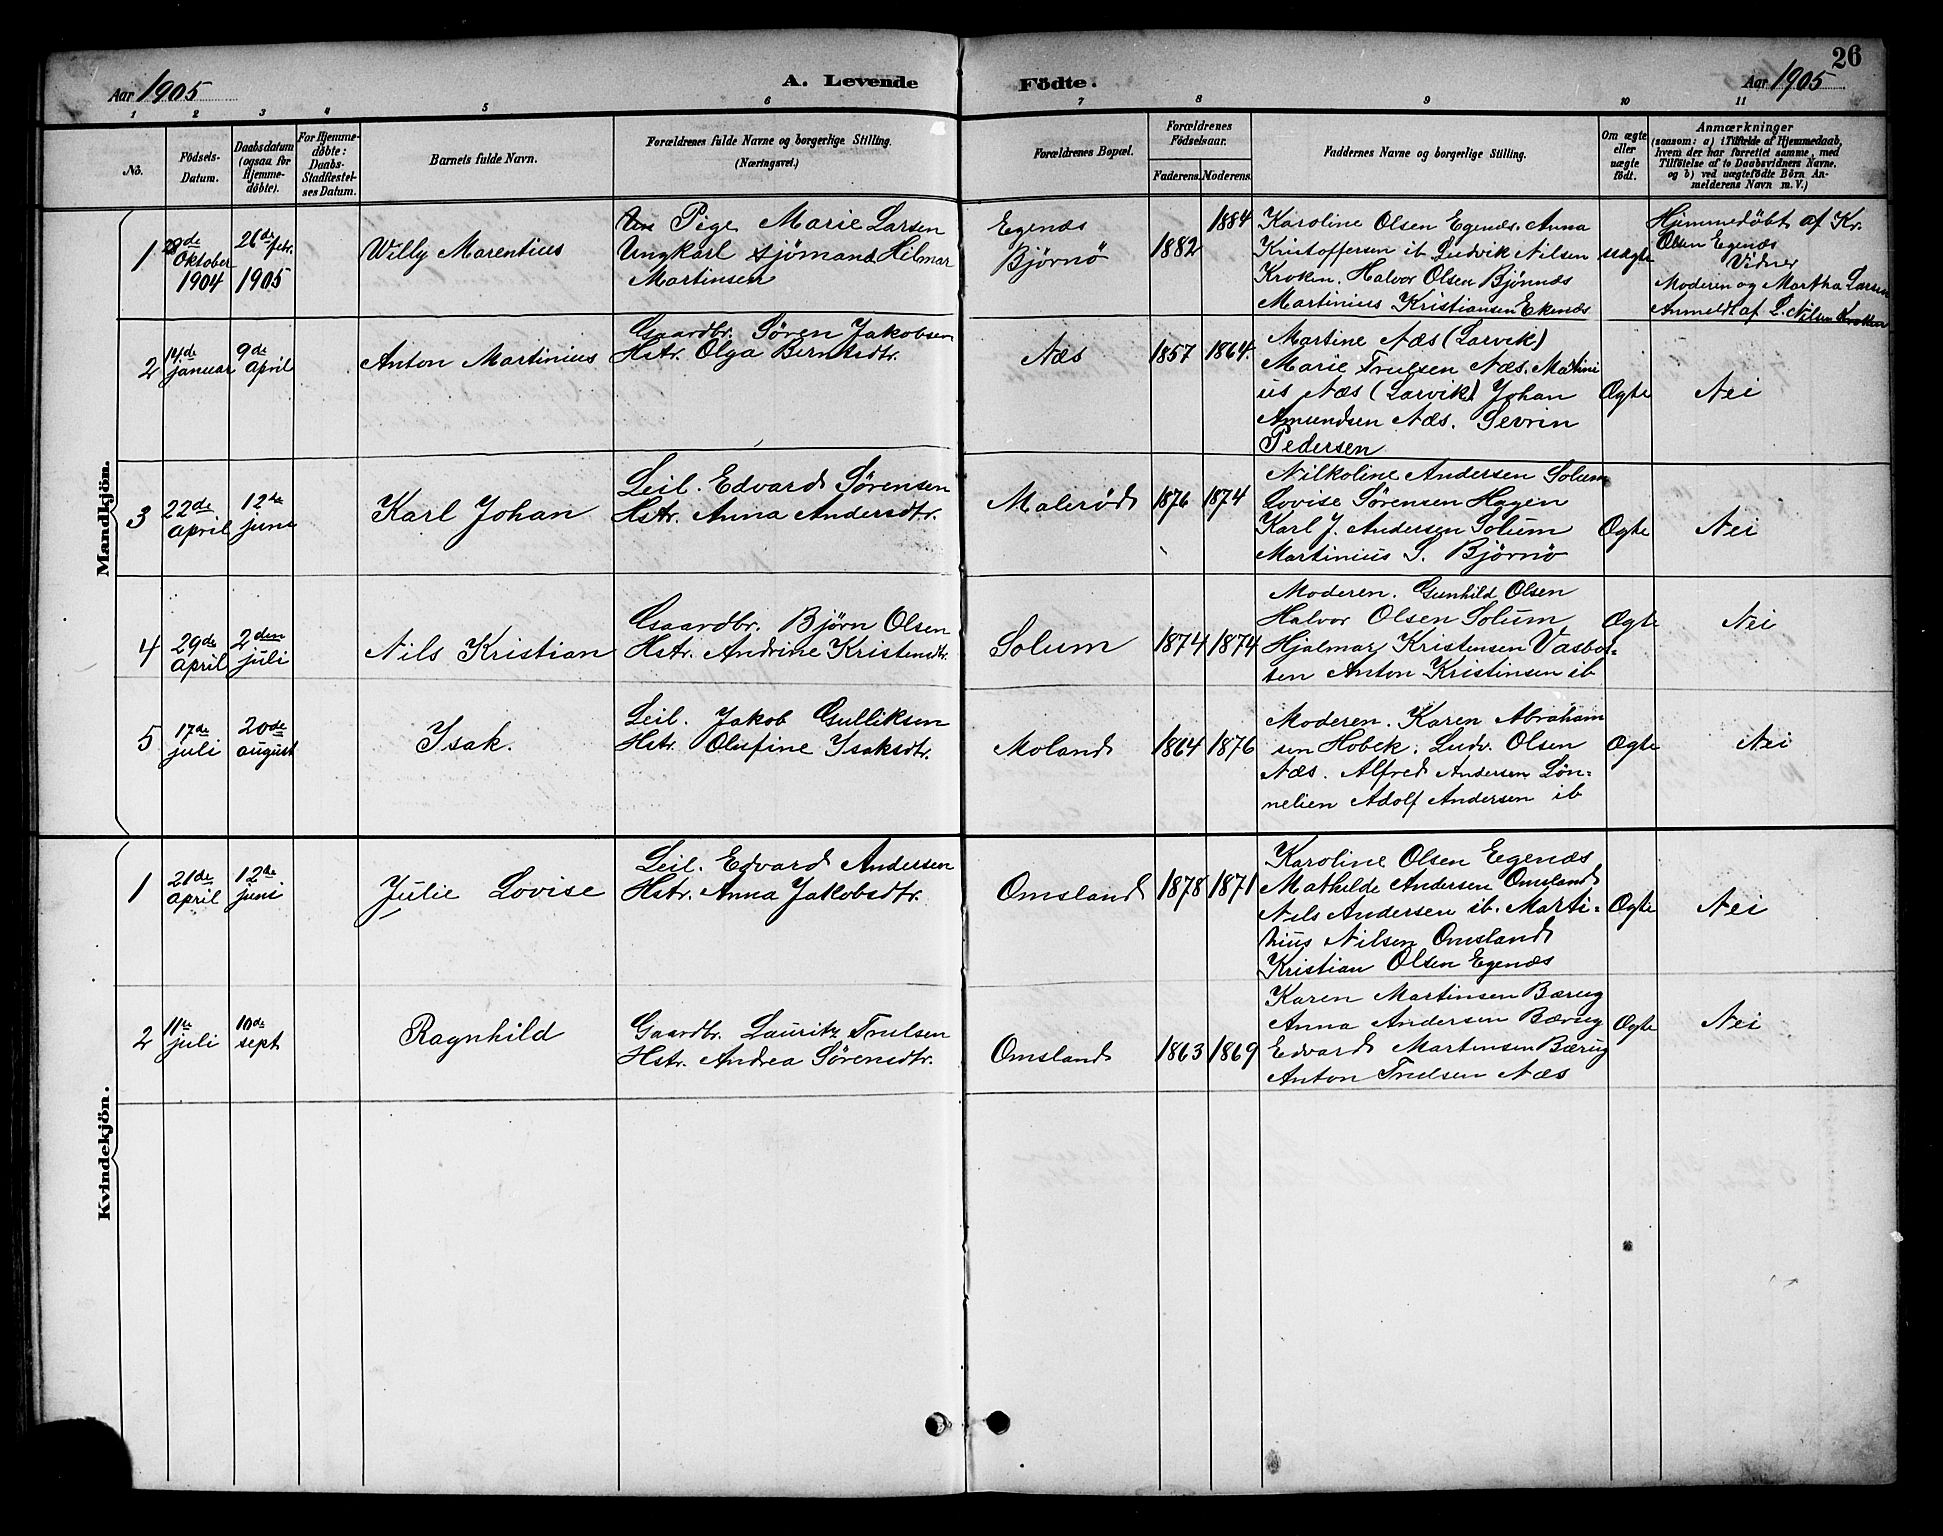 26
Aar 1905
A. Levende Födte.
Aar 1905
1 2 3 4 5 6 7 8 9 10 11
No.
Födsels-
Datum.
Daabsdatum
(ogsaa for
Hjemme-
døbte).
For Hjemme-
døbte:
Daabs-
Stadfæstel-
ses Datum.
Barnets fulde Navn.
Forældrenes fulde Navne og borgerlige Stilling.
(Næringsvei.)
Forældrenes Bopæl.
Forældrenes
Födselsaar.
Faderens. Moderens.
Faddernes Navne og borgerlige Stilling.
Om ægte
eller
uægte
födt.
Anmærkninger
(saasom: a) i Tilfælde af Hjemmedaab,
hvem der har forrettet samme, med
Tilføielse af to Daabsvidners Navne,
og b) ved uægtefödte Börn An-
melderens Navn m. V.)
Mandkjön.
1
28de
Oktober
1904
26de febr.
1905
Willy Marentius
Pige Marie Larsen
Ungkarl sjömand Hilmar
Martinsen
Egenæs
Bjørnø
1882
1884
Karoline Olsen Egenæs. Anna
Kristoffersen ib Ludvik Nilsen
Kroken. Halvor Olsen Bjönnæs
Martinius Kristiansen Ekenæs
uægte
Hjemmedøbt af Kr.
Olsen Egenæs
Vidner
Moderen og Martha Larsen
Anmeldt af L. Nilsen Kroken
2
14de
januar
9de
April
Anton Martinius
Gaardbr. Sören Jakobsen
Hstr. Olga Berntsdtr.
Næs
1857
1864.
Martine Næs (Larvik)
Marie Trulsen Næs. Martini
us Næs (Larvik) Johan
Amundsen Næs. Sevrin
Pedersen
Ægte
Nei
3
22de
April
12te
juni
Karl Johan
Leil. Edvard Sørensen
Hstr. Anna Andersdtr.
Malerød
1876
1874
Nilkoline Andersen Solum
Lovise Sørensen Hagen
Karl J. Andersen Solum
Martinius S. Bjørnø
Ægte
Nei
4
29de
April
2den
juli
Nils Kristian
Gaardbr. Björn Olsen
Hstr. Andrine Kristensdtr.
Solum
1874
1874
Moderen. Gunhild Olsen
Halvor Olsen Solum
Hjalmar Kristensen Vasbot-
ten Anton Kristinsen ib
Ægte
Nei
5
17de
juli
20de
august
Isak.
Leil. Jakob Gulliksen
Hstr. Olufine Isaksdtr.
Moland
1864
1876
Moderen. Karen Abraham
sen Hobek. Ludv. Olsen
Næs. Alfred Andersen Løn-
nelien Adolf Andersen ib
Ægte
Nei
Kvindekjön.
1
21de
April
12de
juni
Julie Lovise
Leil. Edvard Andersen
Hstr. Anna Jakobsdtr.
Omsland
1878
1871
Karoline Olsen Egenæs
Mathilde Andersen Omsland
Nils Andersen ib. Marti-
nius Nilsen Omsland
Kristian Olsen Egenæs
Ægte
Nei
2
11te
juli
10de
sept
Ragnhild
Gaardbr. Lauritz Trulsen
Hstr. Andrea Sørensdtr.
Omsland
1863
1869
Karen Martinsen Bærug
Anna Andersen Bærug
Edvard Martinsen Bærug
Anton Trulsen Næs
Ægte
Nei